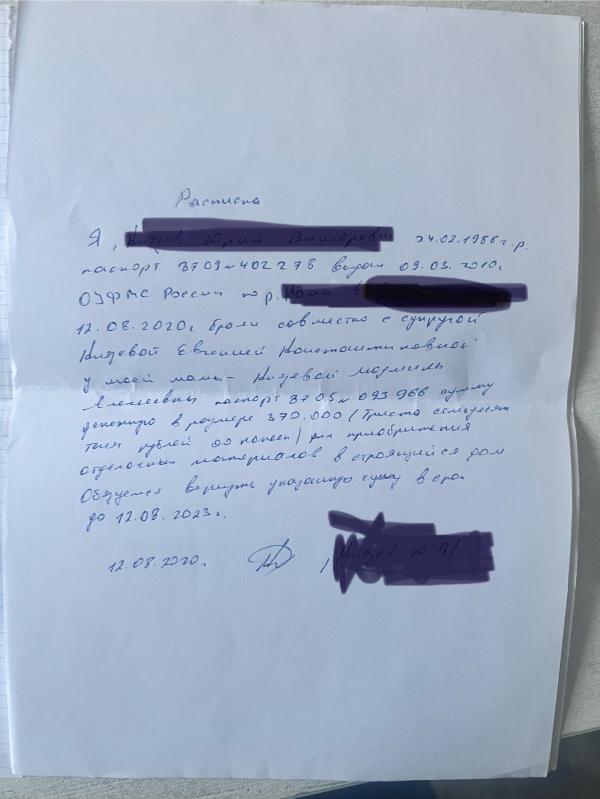 Расписка
Я, 24.02.1986 г.р.
паспорт 3709 № 402278 выдан 09.03.2010г
ОУФМС России по р.
12.08.2020г брали совместно с супругой
Князевой Евгенией Константиновной
у моей мамы - Князевой
паспорт 3705 № 093966 сумму
денежную в размере 370.000 /Триста семьдесят
тысяч рублей 00 копеек/ для приобритения
отделочных материалов в строящийся дом.
Обязуемся вернуть указанную сумму в срок
до 12.08.2023г.
12.08.2020г